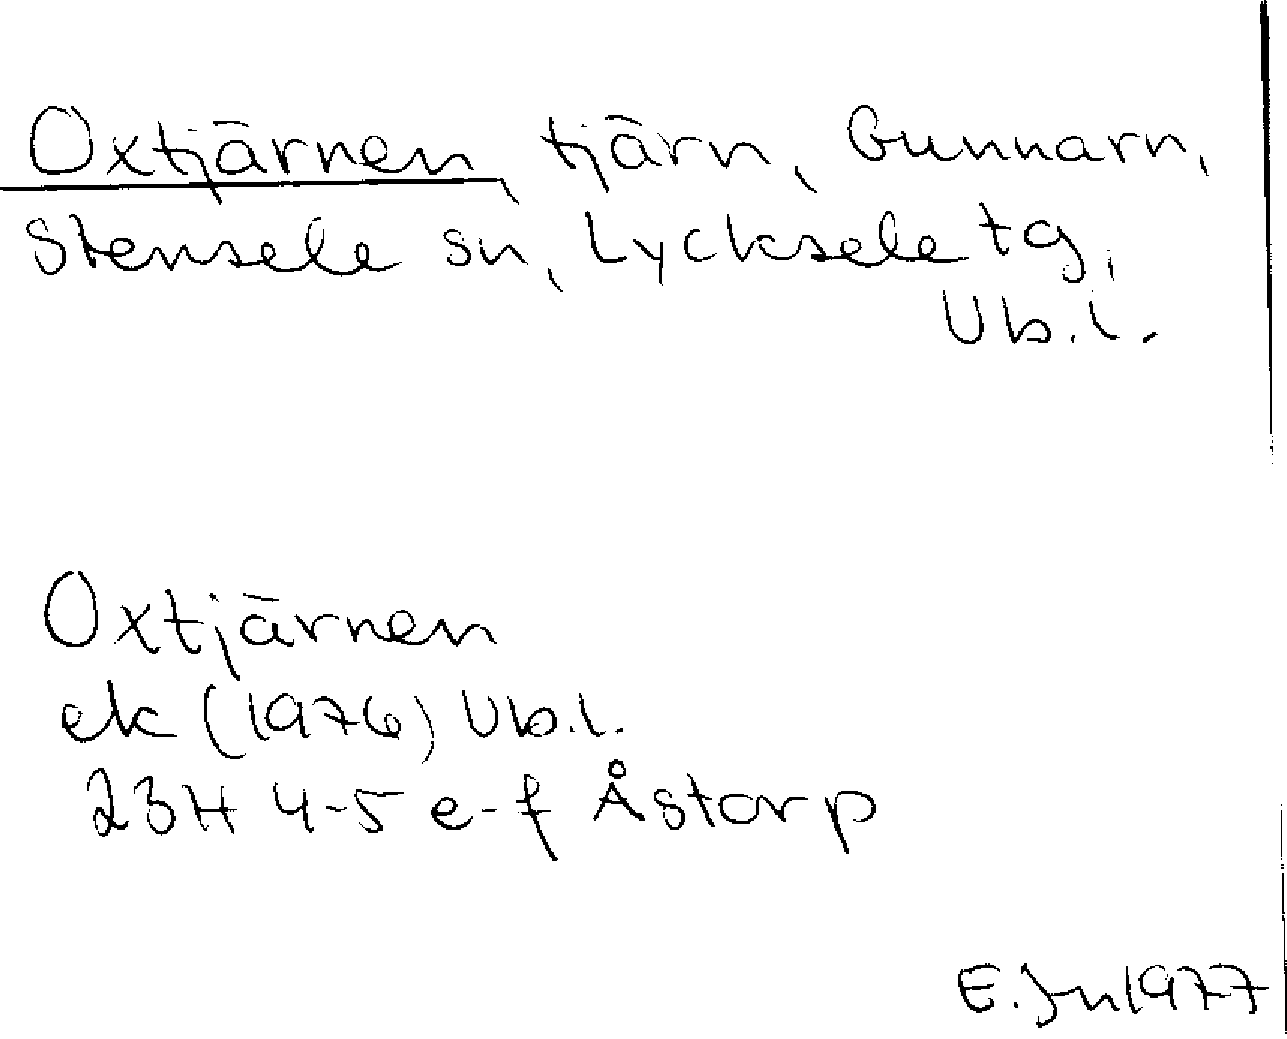 Oxtjärnen, tjärn, Gunnarn,
Stensele sn, Lycksele tg,
Vb.l.
Oxtjärnen
ek (1976) Vb.l.
23H 4-5 e-f Åstorp
E. Jn 1977